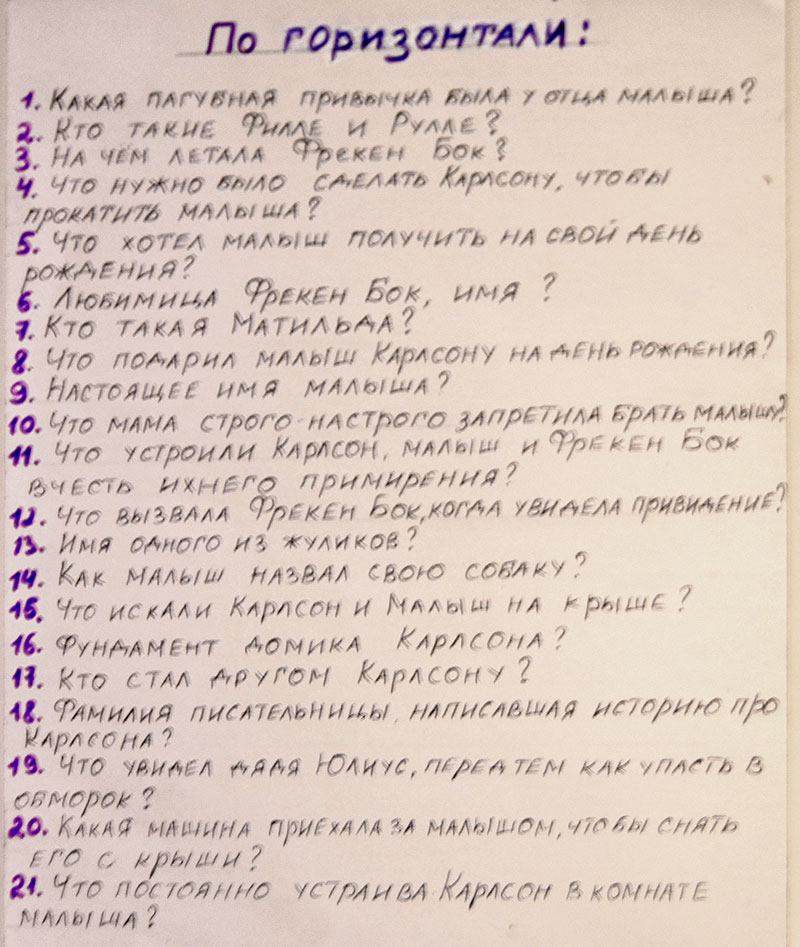 По горизонтали:
1. Какая пагубная привычка была у отца малыша?
2. Кто такие Филле и Рулле?
3. На чём летала Фрекен Бок?
4. Что нужно было сделать Карлсону, чтобы
прокатить малыша?
5. Что хотел малыш получить на свой день
рождения?
6. Любимица Фрекен Бок, имя ?
7. Кто такая Матильда?
8. Что подарил малыш Карлсону на день рождения?
9. Настоящее имя малыша?
10. Что мама строго-настрого запретила брать малышу?
11. Что устроили Карлсон, малыш и Фрекен Бок
в честь ихнего примирения?
12. Что вызвала Фрекен Бок, когда увидела привидение?
13. Имя одного из жуликов?
14. Как малыш назвал свою собаку?
15. Что искали Карлсон и Малыш на крыше?
16. Фундамент домика Карлсона?
17. Кто стал другом Карлсону?
18. Фамилия писательницы, написавшая историю про
Карлсона?
19. Что увидел дядя Юлиус, перед тем как упасть в
обморок?
20. Какая машина приехала за малышом, чтобы снять
его с крыши?
21. Что постоянно устраива Карлсон в комнате
малыша?